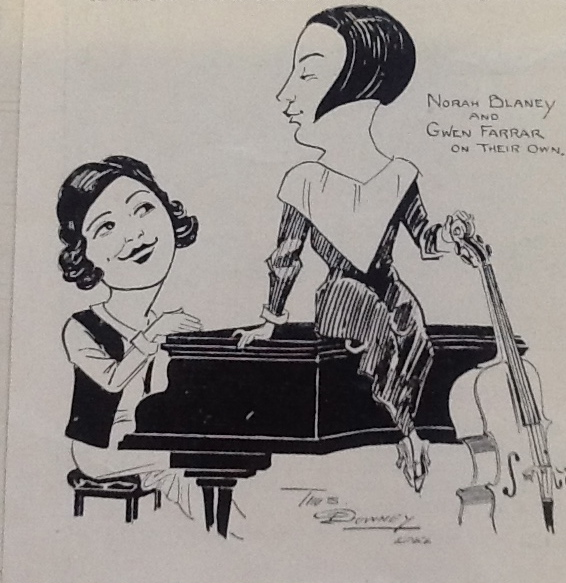 NORAH BLANEY
AND
GWEN FARRAR
ON THEIR OWN.
THOS.
DOWNEY